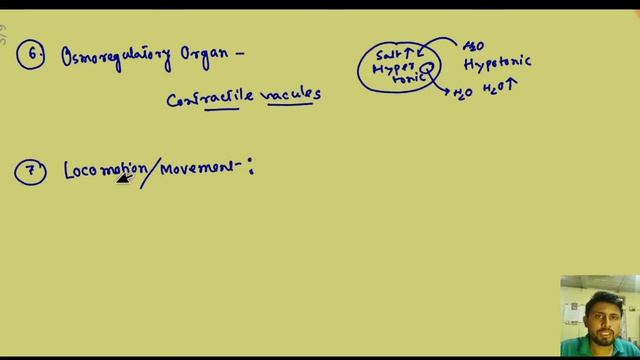 3/9
6. Osmoregulatory Organ -
Contractile vacules
Salt↑
Hyper
tonic
H₂O
Hypotonic
H₂O H₂O↑
7. Locomotion/Movement- :